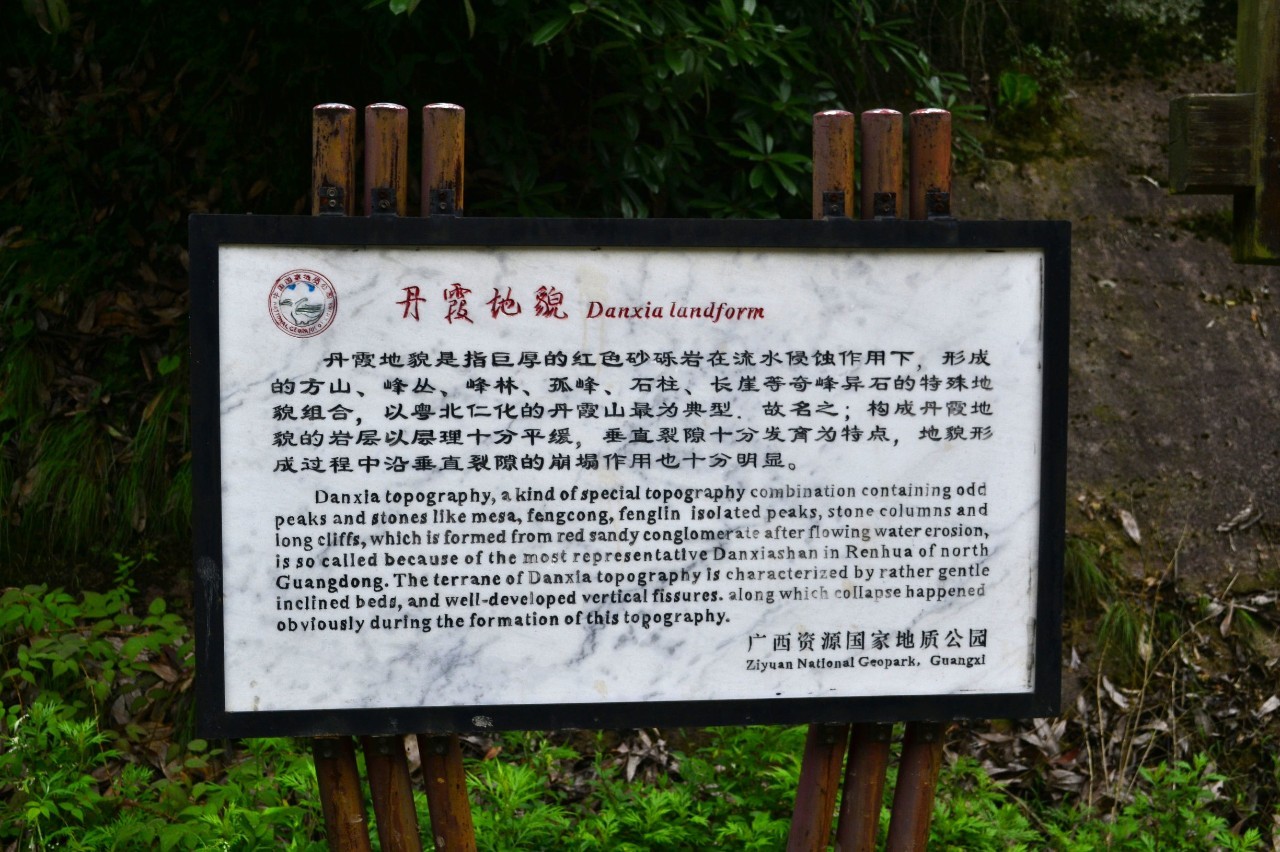 丹霞地貌 Danxia landform
丹霞地貌是指巨厚的红色砂砾岩在流水侵蚀作用下，形成
的方山、峰丛、峰林、孤峰、石柱、长崖等奇峰异石的特殊地
貌组合，以粤北仁化的丹霞山最为典型．故名之；构成丹霞地
貌的岩层以层理十分平缓，垂直裂隙十分发育为特点，地貌形
成过程中沿垂直裂隙的崩塌作用也十分明显。
Danxia topography, a kind of special topography combination containing odd
peaks and stones like mesa, fengcong, fenglin isolated peaks, stone columns and
long cliffs, which is formed from red sandy conglomerate after flowing water erosion,
is so called because of the most representative Danxiashan in Renhua of north
Guangdong. The terrane of Danxia topography is characterized by rather gentle
inclined beds, and well-developed vertical fissures. along which collapse happened
obviously during the formation of this topography.
广西资源国家地质公园
Ziyuan National Geopark, Guangxi